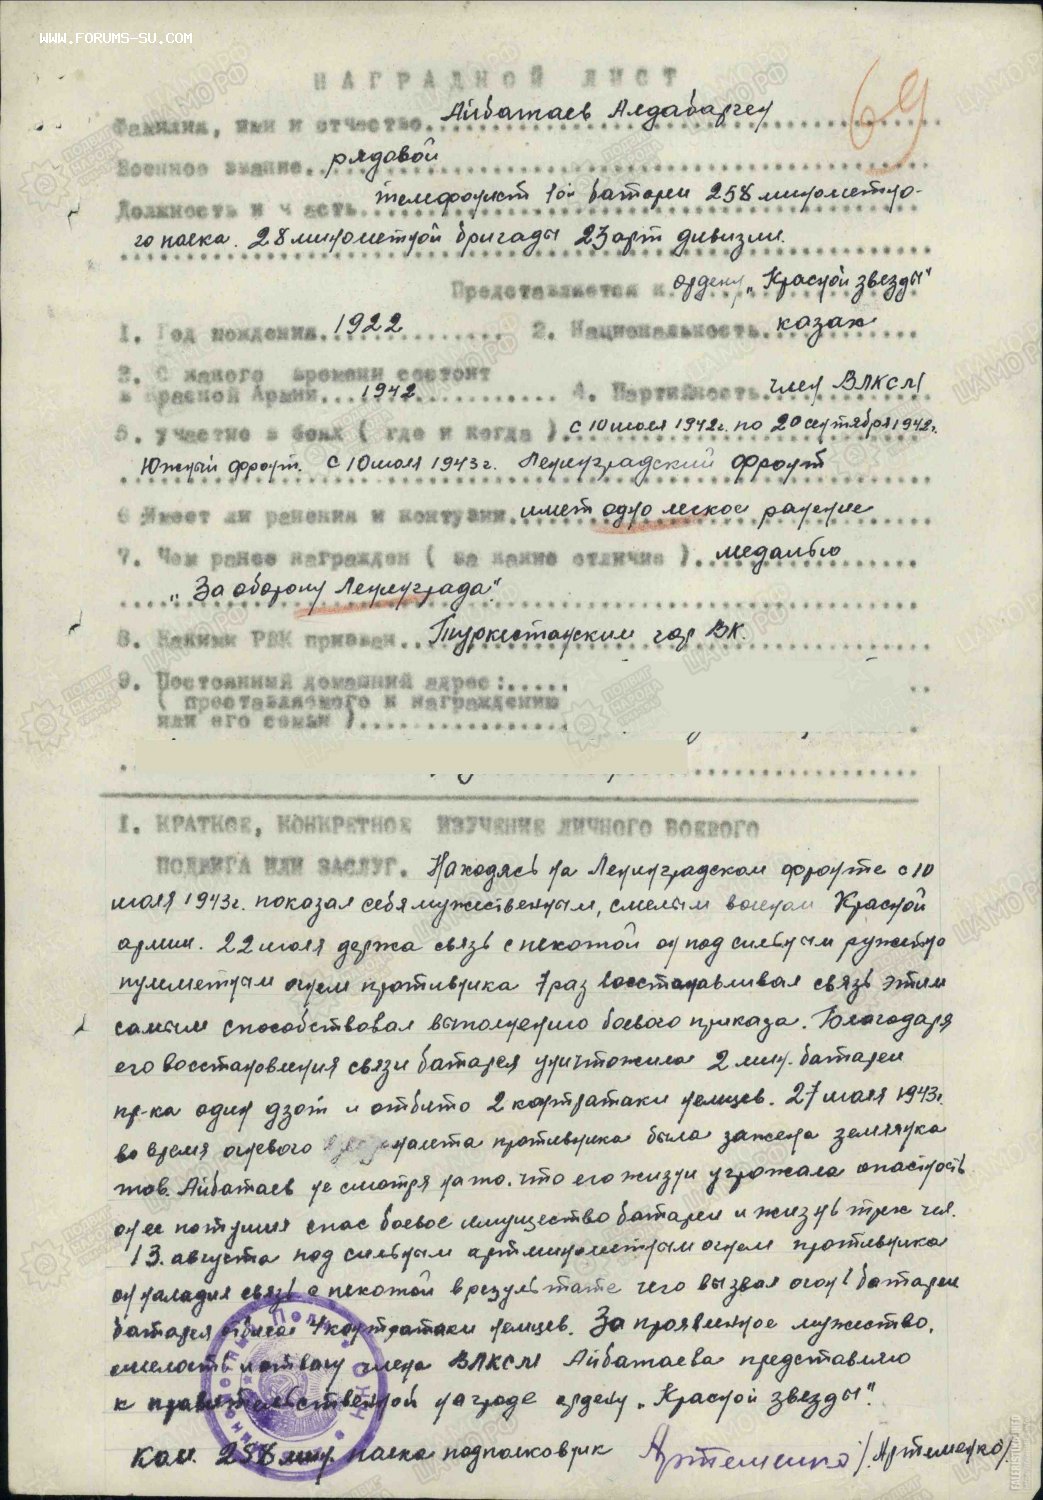 WWW.FORUMS-SU.COM
НАГРАДНОЙ ЛИСТ
69
Фамилия, имя и отчество Айбатаев Алдаберген
Военное звание рядовой
Должность и часть телефонист 1ой батареи 258 минометно-
го полка. 28 минометной бригады 23 арт дивизии.
Представляется к ордену „Красной звезды"
1. Год рождения 1922 2. Национальность казах
3. С какого времени состоит
в Красной Армии 1942 4. Партийность член ВЛКСМ
5. Участие в боях ( где и когда ) с 10 июля 1942г. по 20 сентября 1942г.
Южный фронт. С 10 июля 1943г. Ленинградский фронт
6 Имеет ли ранения и контузии имеет одно легкое ранение
7. Чем ранее награжден ( за какие отличия ) медалью
„За оборону Ленинграда".
8. Каким РВК призван Туркестанским гор ВК.
9. Постоянный домашний адрес:
( преставляемого к награждению
или его семьи )
I. КРАТКОЕ, КОНКРЕТНОЕ ИЗУЧЕНИЕ ЛИЧНОГО БОЕВОГО
ПОДВИГА ИЛИ ЗАСЛУГ. Находясь на Ленинградском фронте с 10
июля 1943г. показал себя мужественным, смелым воином Красной
армии. 22 июля держа связь с пехотой он под сильным ружейно
пулеметным огнем противника 7 раз восстанавливал связь этим
самым способствовал выполнению боевого приказа. Благодаря
его восстановления связи батарея уничтожила 2 мин. батареи
пр-ка один дзот и отбито 2 контратаки немцев. 27 июля 1943г.
во время огневого налета противника была зажжена землянка
тов. Айбатаев не смотря на то. что его жизни угрожала опасность
он ее потушил спас боевое имущество батареи и жизнь трех чел.
13. августа под сильным артминометным огнем противника
он наладил связь с пехотой в результате чего вызвал огонь батареи
батарея отбила 4 контратаки немцев. За проявленное мужество,
смелость и отвагу члена ВЛКСМ Айбатаева представляю
к правительственной награде ордену „Красной звезды".
Ком. 258 мин. полка подполковник Артеменко /Артеменко/.